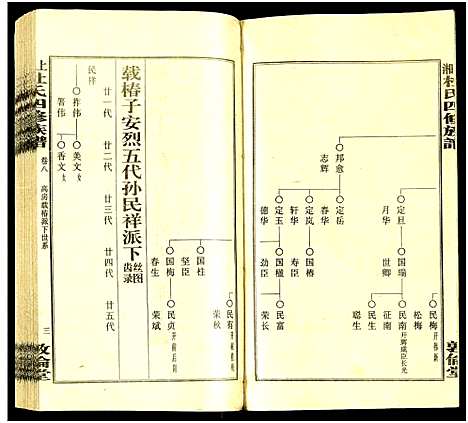 湘杜氏四修族谱
民梅
松梅
定旦
国瑞
民南
月华
世卿
征南
民生
瑶生
邦愈
定岳
志辉
春华
定岚
国椿
轩华
寿臣
定玉
国楹
民富
德华
劲臣
荣长
敦伦堂
民有
荣秋
国柱
坚臣
国梅
民贞
春生
荣斌
载椿子安烈五代孙民祥派下
丝图
齿录
廿一代
廿二代
廿三代
廿四代
廿五代
民祥
祚伟
美文
箬伟
香文
上杜氏四修族谱
卷八
高房载椿派下世系
三
敦伦堂